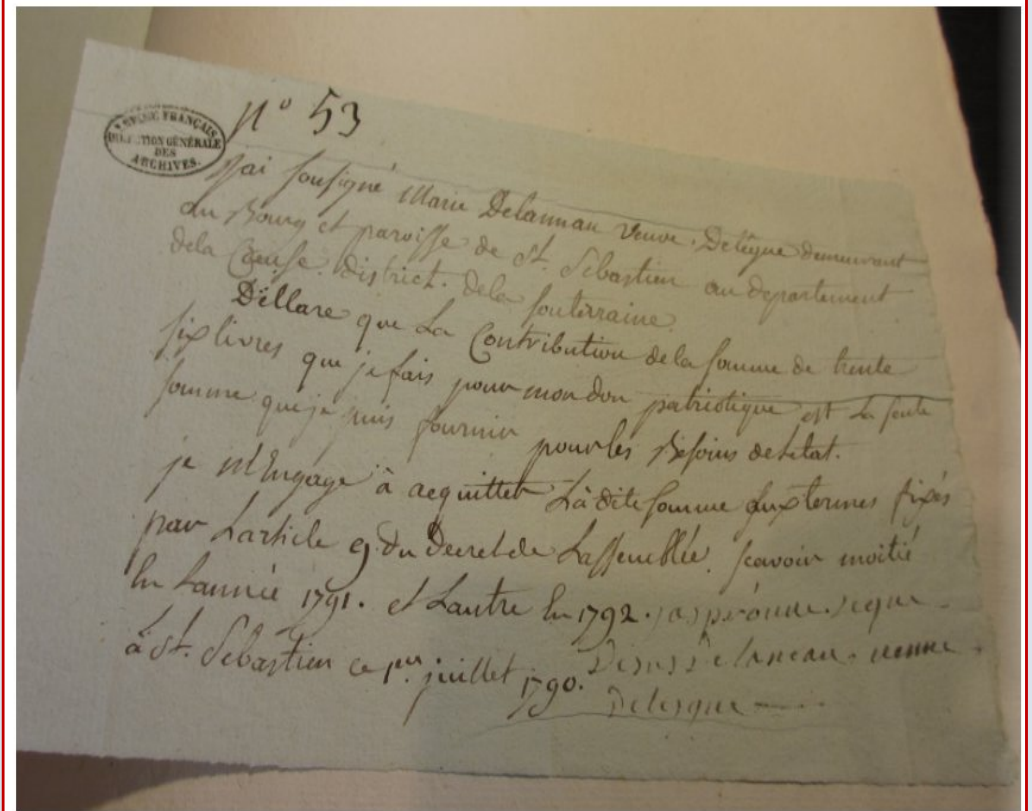 N° 53
EMPIRE FRANÇAIS
DIRECTION GÉNÉRALE
DES
ARCHIVES.
jai sousigné Marie Delannau veuve. Delêque demeurant
du Bourg et paroisse de St. Sebastien au departement
dela Creuse. district. dela souterraine.
Déllare que La Contribution dela somme de trente
six livres que je fais pour mon don patriotique est La seule
somme que je puis fournir pour les Besoins de Létat.
je M'Engage à acquitter Laditte somme aux termes fixés
par Larticle 9 du decret de Lassemblée. scavoir moitié
En Lannée 1791. et Lautre En 1792.
à St. Sebastien ce 1er. juillet 1790.